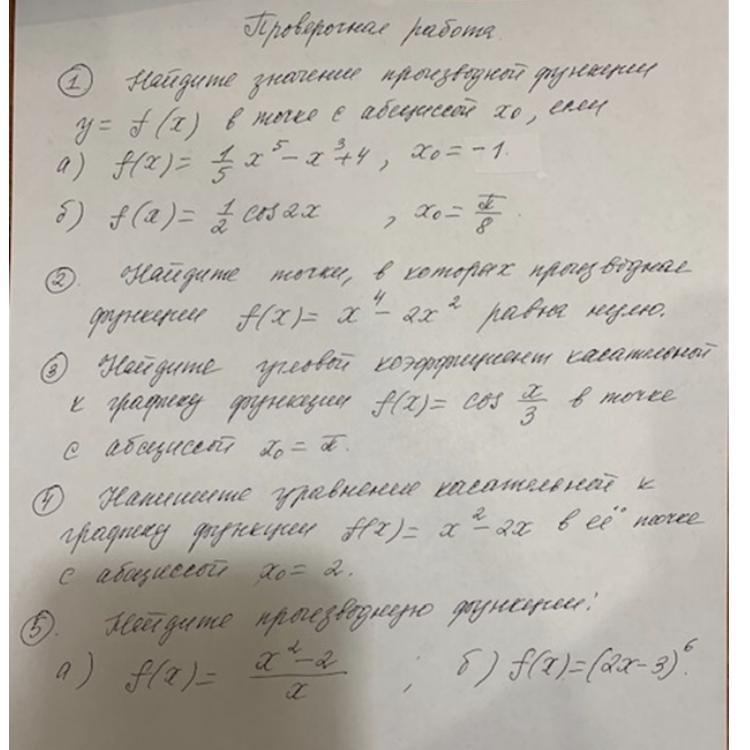 Проверочная работа.
① Найдите значение производной функции
y = f(x) в точке с абсциссой x₀, если
а) f(x) = 1/5 x⁵ - x³ + 4, x₀ = -1.
б) f(x) = 1/2 cos 2x , x₀ = π/8.
②. Найдите точки, в которых производная
функции f(x) = x⁴ - 2x² равна нулю.
③ Найдите угловой коэффициент касательной
к графику функции f(x) = cos x/3 в точке
с абсциссой x₀ = π.
④ Напишите уравнение касательной к
графику функции f(x) = x² - 2x в её точке
с абсциссой x₀ = 2.
⑤. Найдите производную функции:
а) f(x) = (x² - 2)/x ; б) f(x) = (2x - 3)⁶.